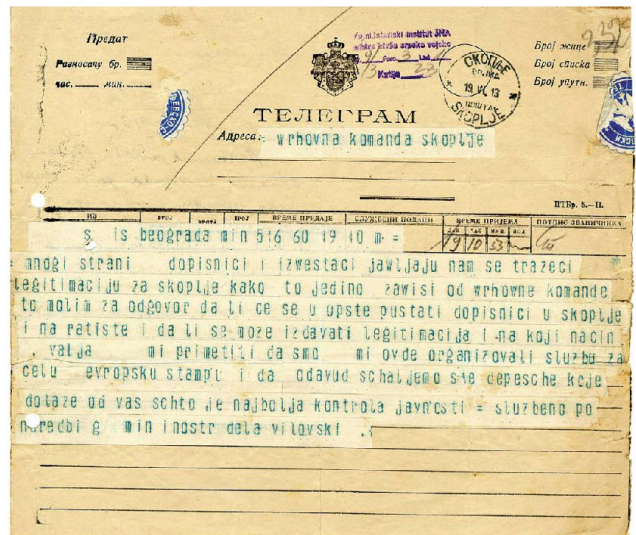 Предат
Разносачу бр.
час. мин.
Vojni istoriski institut JNA
3
Kutija 23
СКОПЉЕ
19.VI.13
SKOPLJE
232
Број жице
Број списка
Број упутн.
ТЕЛЕГРАМ
Адреса: wrhovna komanda skoplje
ПТБр. 5.—П.
ИЗ БРОЈ ВРСТА БРОЈ ВРЕМЕ ПРЕДАЈЕ СЛУЖБЕНИ ПОДАЦИ ВРЕМЕ ПРИЈЕМА ПОТПИС ЗВАНИЧНИКА
ДАН ЧАС МИН
s is beograda min 516 60 19 10 m = 19 10 53
mnogi strani dopisnici i izwestaci jawljaju nam se trazeci
legitimaciju za skoplje kako to jedino zawisi od wrhowne komande
to molim za odgovor da li ce se u opste pustati dopisnici u skoplje
i na ratiste i da li se moze izdavati legitimacija i na koji nacin
. valja mi primetiti da smo mi ovde organizovali sluzbu za
celu evropsku stampu i da odavud schaljemo sve depesche koje
dolaze od vas schto je najbolja kontrola javnosti = sluzbeno po
naredbi g min inostr dela vilovski .